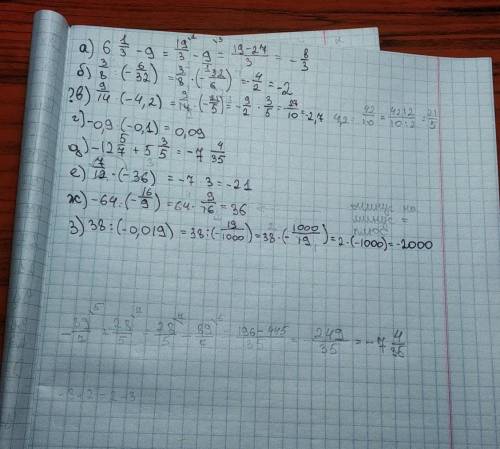 а) 6 1/3 - 9 = 19/3 - 9 = (19-27)/3 = - 8/3
б) 3/8 : (- 6/32) = 3/8 · (- 32/6) = - 4/2 = -2
?в) 9/14 (-4,2) = 9/14 · (- 21/5) = - 9/2 · 3/5 = 27/10 = -2,7 4,2 = 42/10 = 42:2/10:2 = 21/5
г) -0,9 · (-0,1) = 0,09
д) -12 5/7 + 5 3/5 = -7 4/35
е) 7/12 · (-36) = -7 · 3 = -21
ж) -64 : (- 16/9) = 64 · 9/16 = 36 минус на
минус =
плюс
з) 38 : (-0,019) = 38 : (- 19/1000) = 38 · (- 1000/19) = 2 · (-1000) = -2000
- 89/7 + 28/5 = 28/5 - 89/7 = (196-445)/35 = - 249/35 = -7 4/35